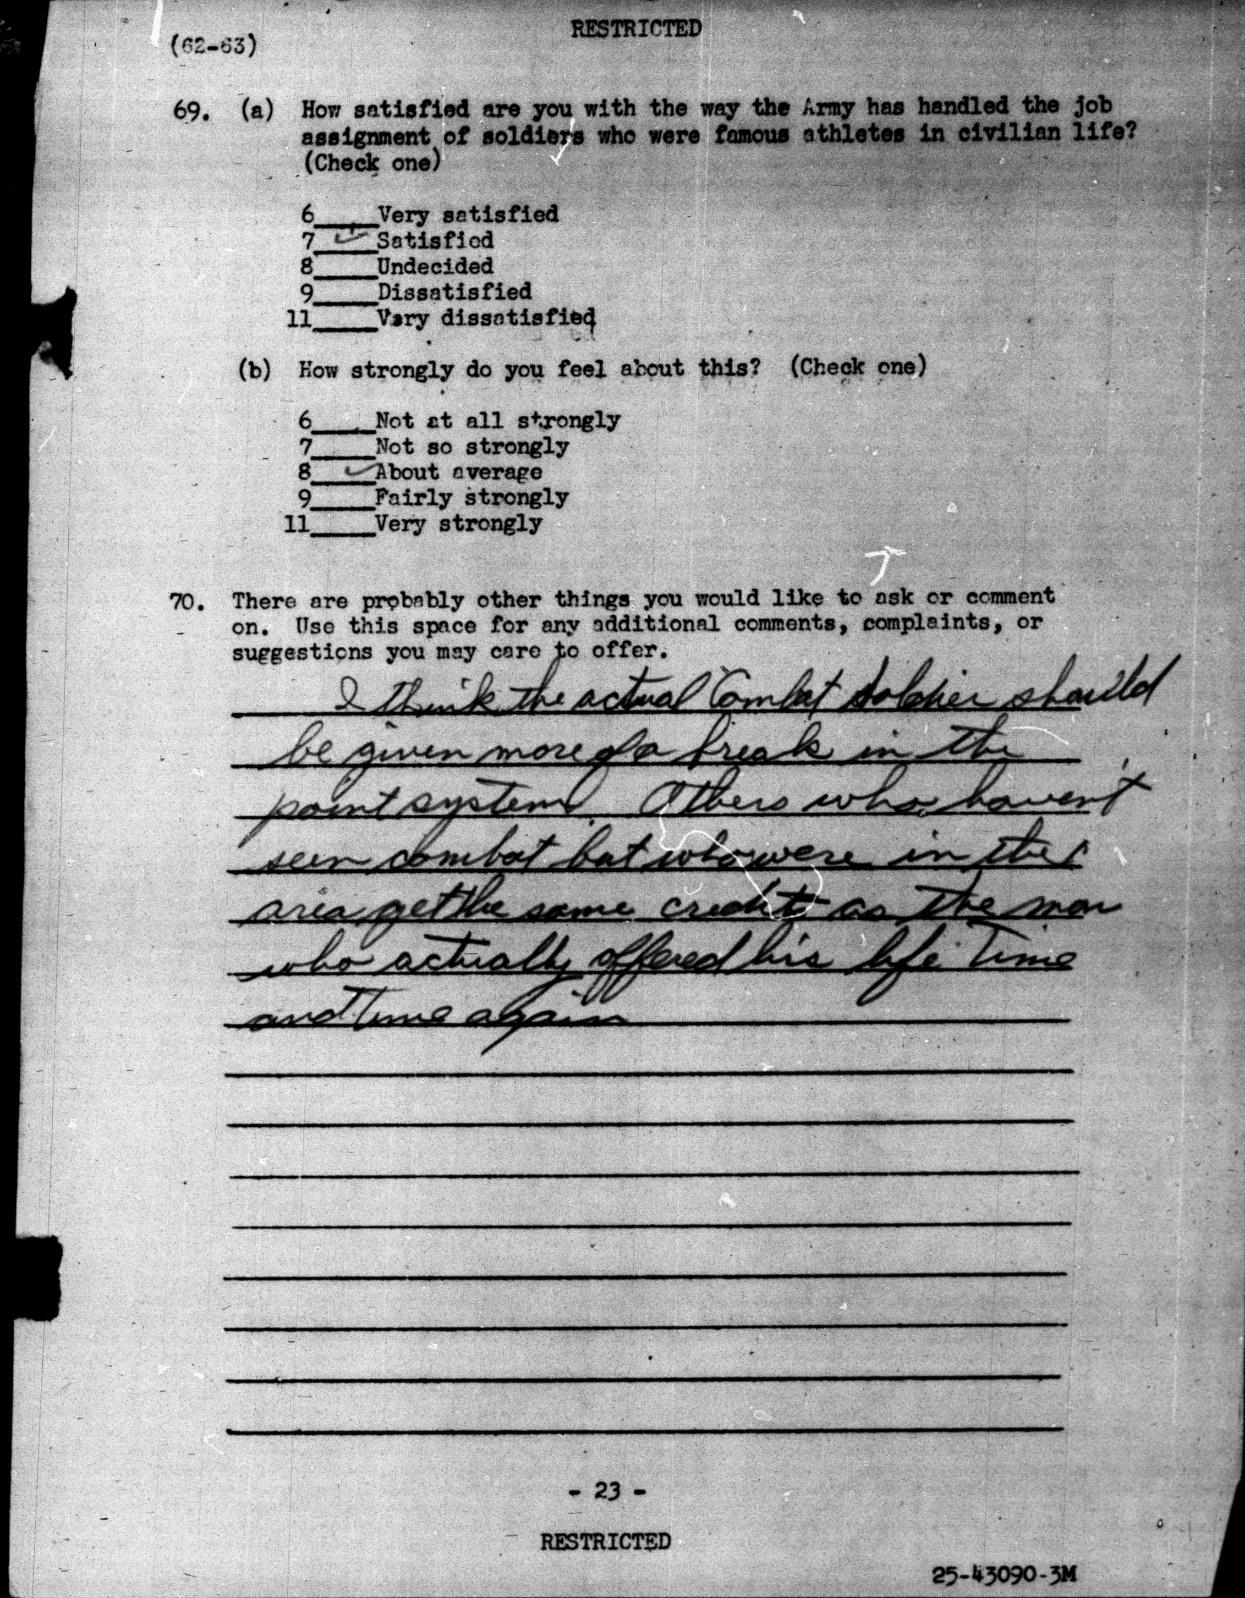 RESTRICTED
(62-63)
69. (a) How satisfied are you with the way the Army has handled the job
assignment of soldiers who were famous athletes in civilian life?
(Check one)
6____Very satisfied
7__✓__Satisfied
8____Undecided
9____Dissatisfied
11____Very dissatisfied
(b) How strongly do you feel about this? (Check one)
6____Not at all strongly
7____Not so strongly
8__✓__About average
9____Fairly strongly
11____Very strongly
70. There are probably other things you would like to ask or comment
on. Use this space for any additional comments, complaints, or
suggestions you may care to offer.
I think the actual Combat soldier should
be given more of a break in the
point system. Others who haven't
seen combat but who were in the
area get the same credit as the man
who actually offered his life time
and time again
- 23 -
RESTRICTED
25-43090-3M